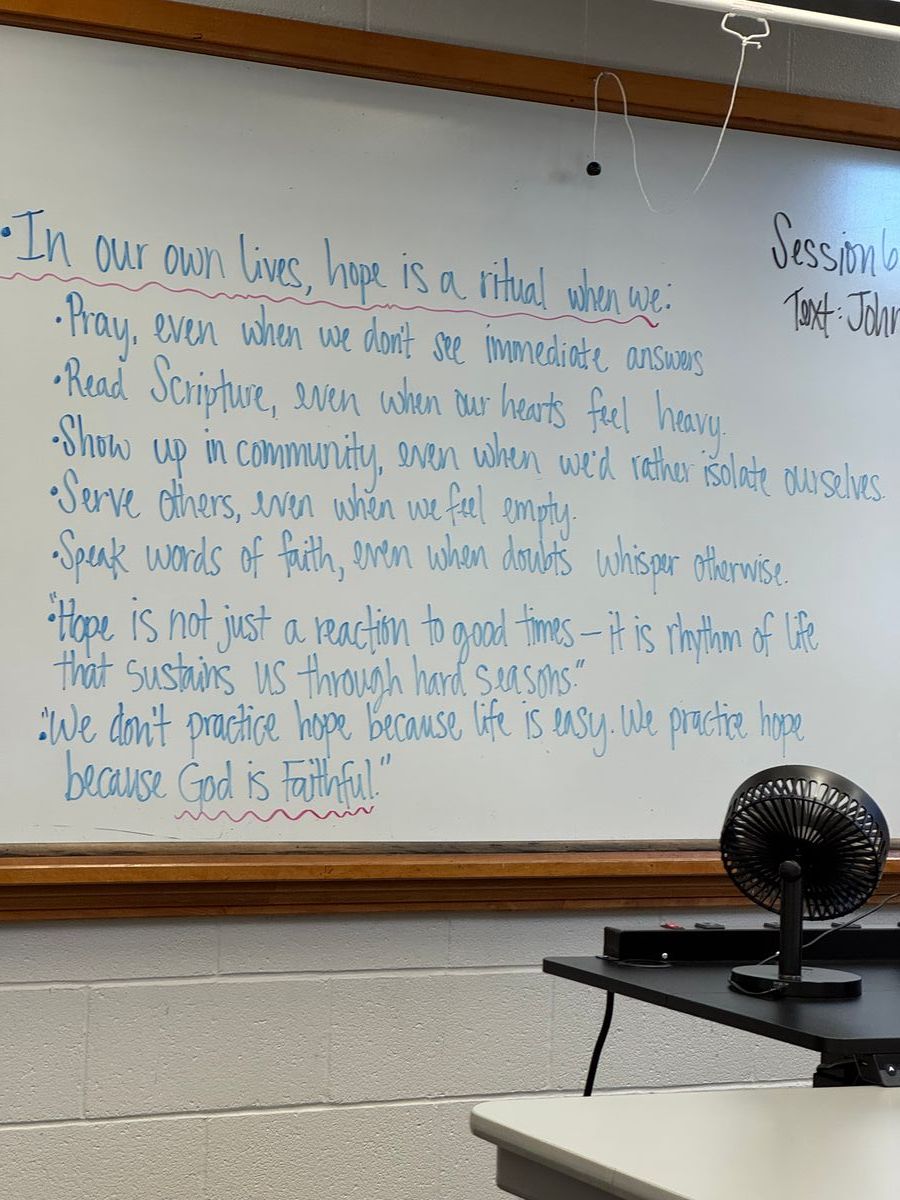 •In our own lives, hope is a ritual when we:
•Pray, even when we don't see immediate answers
•Read Scripture, even when our hearts feel heavy.
•Show up in community, even when we'd rather isolate ourselves.
•Serve others, even when we feel empty.
•Speak words of faith, even when doubts whisper otherwise.
•"Hope is not just a reaction to good times – it is rhythm of life
that sustains us through hard seasons."
•"We don't practice hope because life is easy. We practice hope
because God is Faithful."
Session 6
Text: John